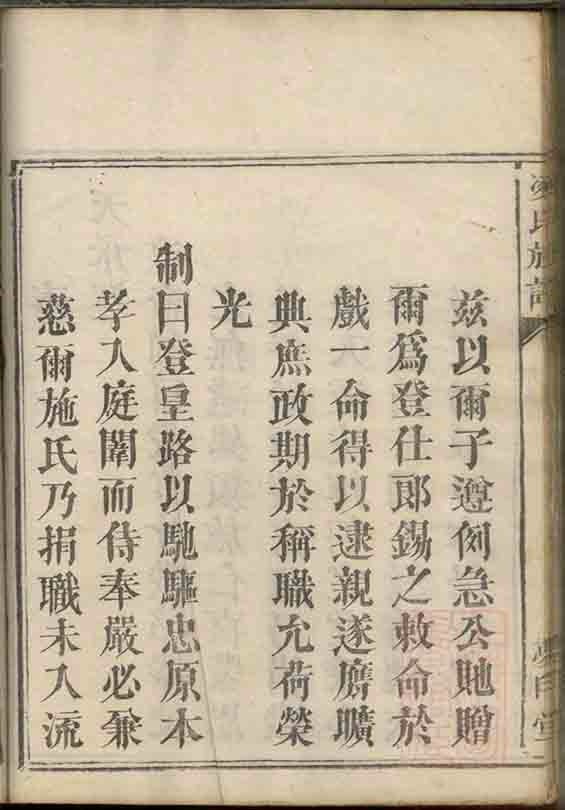 茲以爾子遵例急公貤贈
爾爲登仕郎錫之敕命於
戲一命得以逮親遂膺曠
典庶政期於稱職允荷榮
光
制曰登皇路以馳驅忠原本
孝入庭闈而侍奉嚴必兼
慈爾施氏乃捐職未入流